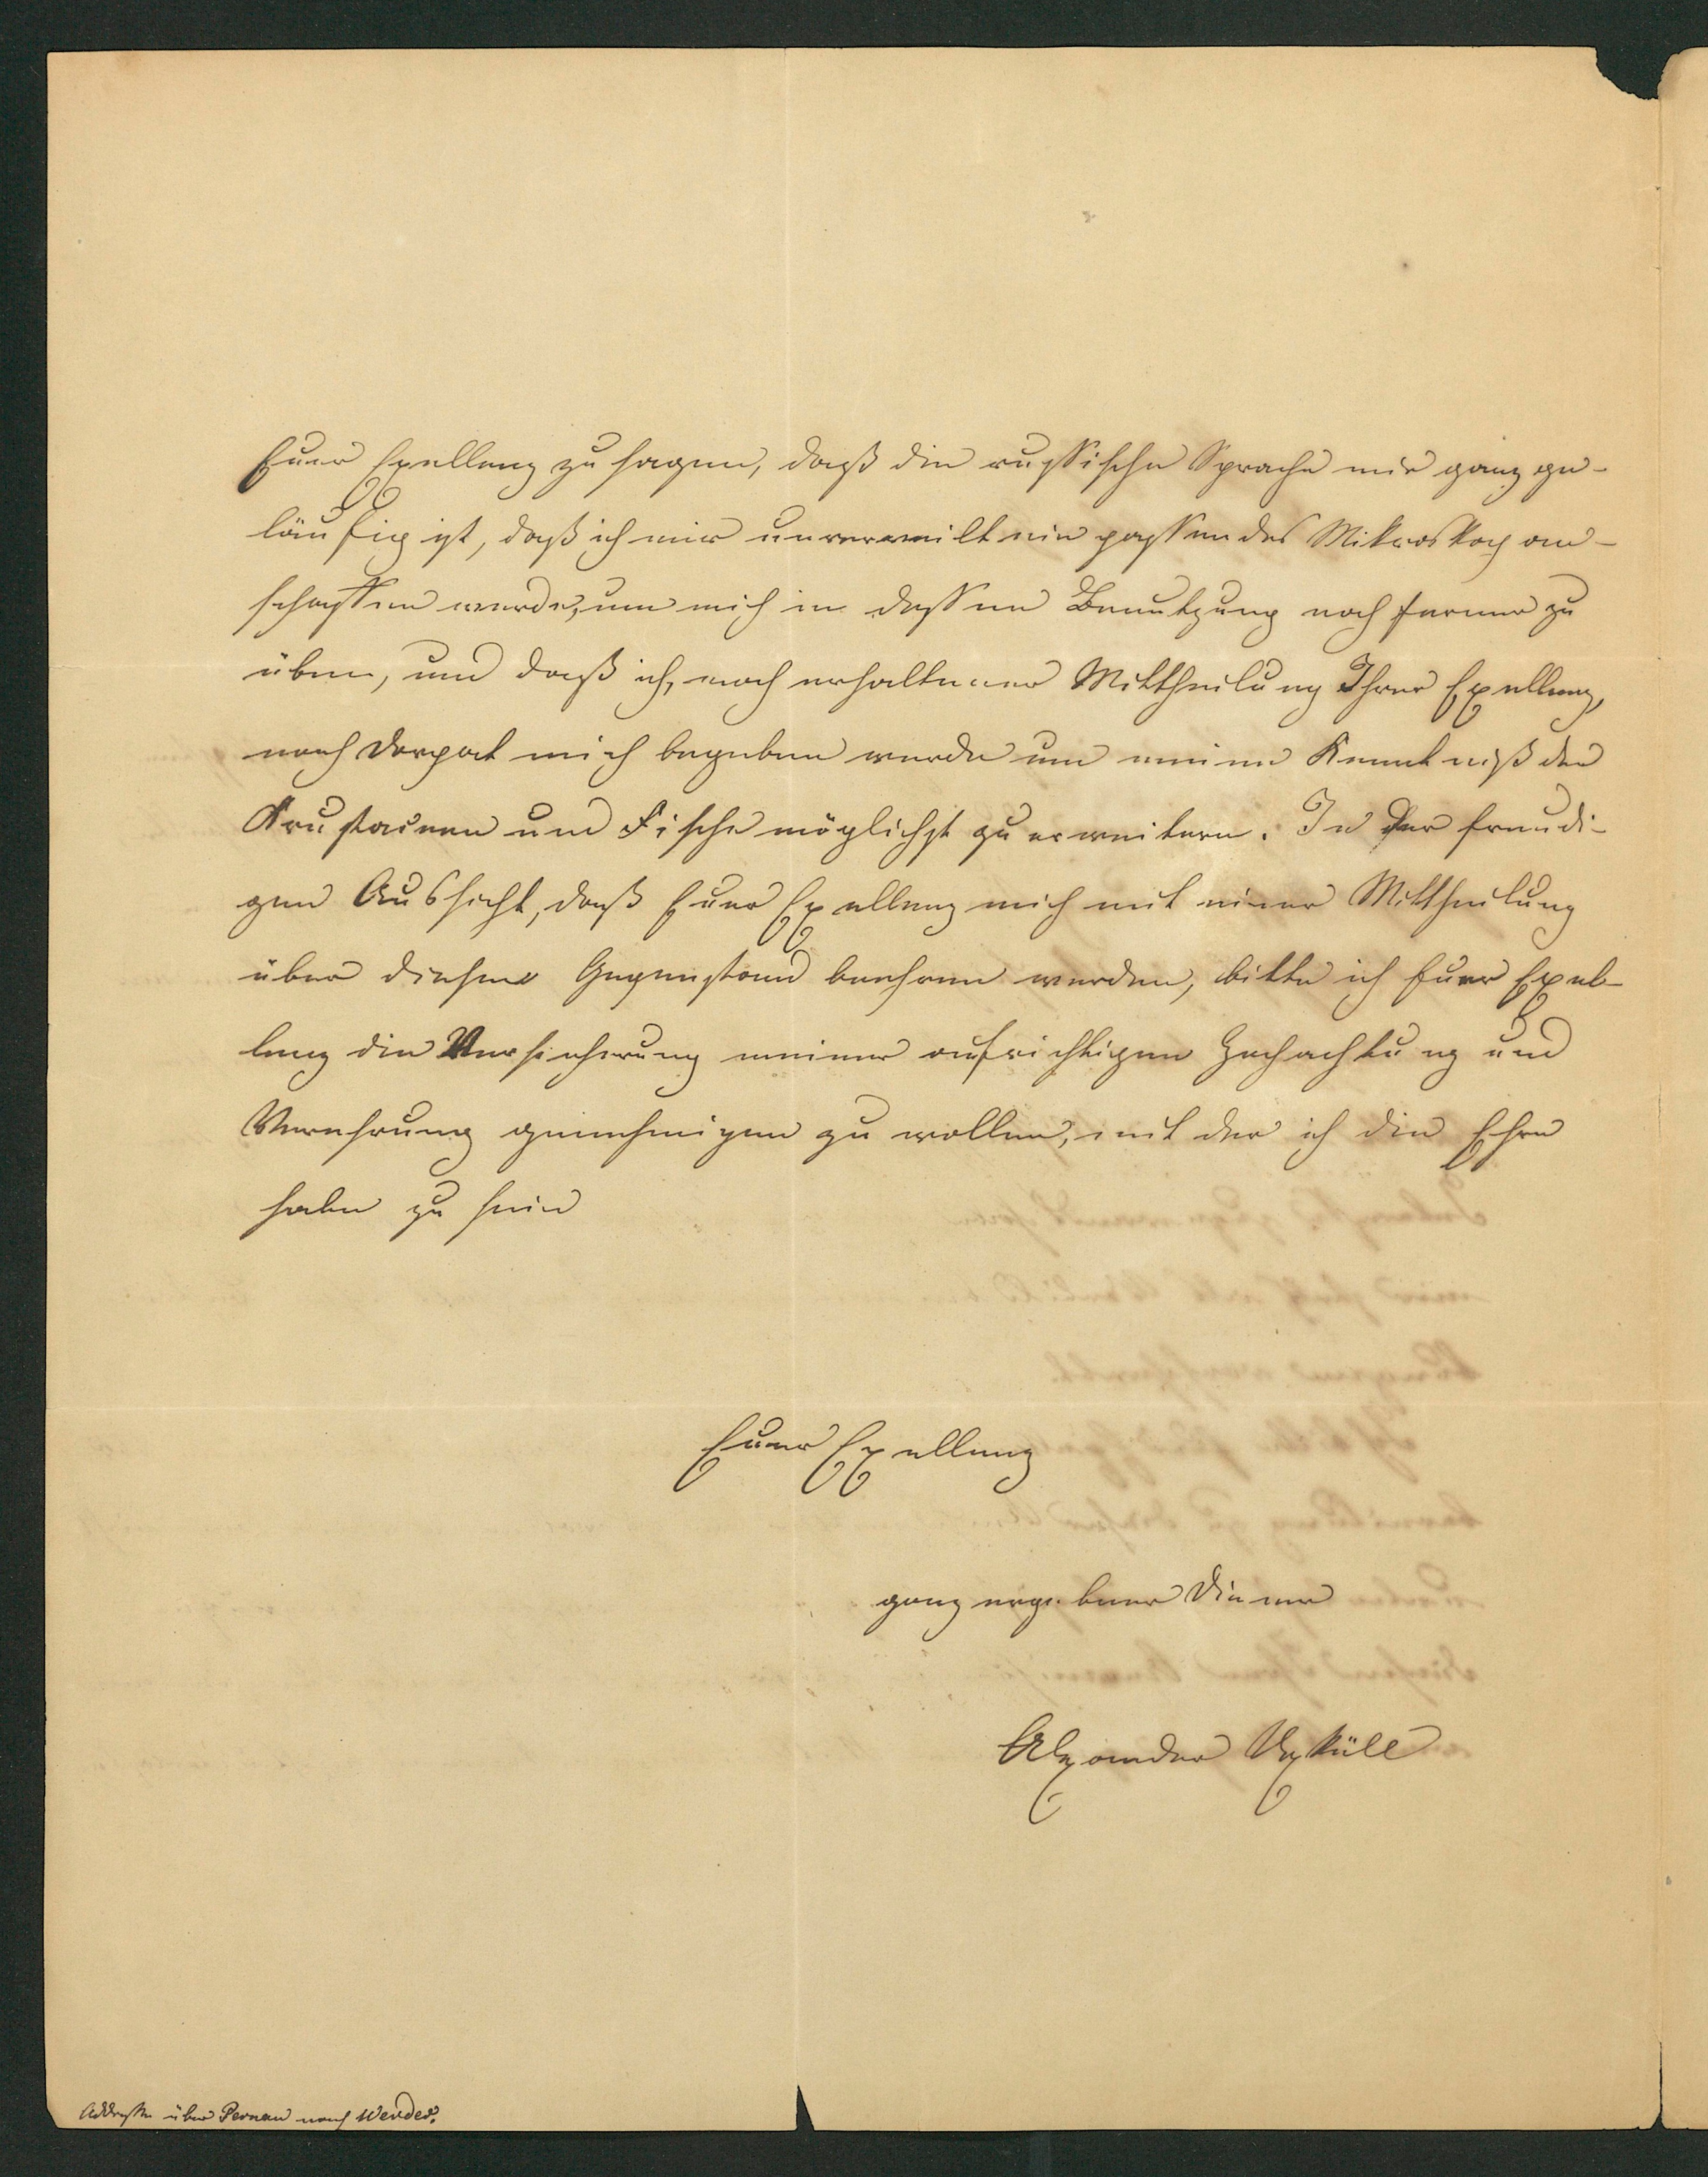 Euer Exellenz zu sagen, daß die russische Sprache mir ganz ge-
läufig ist, daß ich mir unverweilt ein passendes Mikroskop an-
schaffen werde, um mich in dessen Benutzung noch ferner zu
üben, und daß ich, nach erhaltener Mittheilung Ihrer Exellenz,
nach Dorpat mich begeben werde um meine Kenntniß der
Krustaceen und Fische möglichst zu erweitern. In der freudi-
gen Aussicht, daß Euer Exellenz mich mit einer Mittheilung
über diesen Gegenstand beehren werden, bitte ich Euer Exel-
lenz die Versicherung meiner aufrichtigen Hochachtung und
Verehrung genehmigen zu wollen, mit der ich die Ehre
habe zu sein
Euer Exellenz
ganz ergebener Diener
Alexander Uexküll
Addresse über Pernau nach Werder.